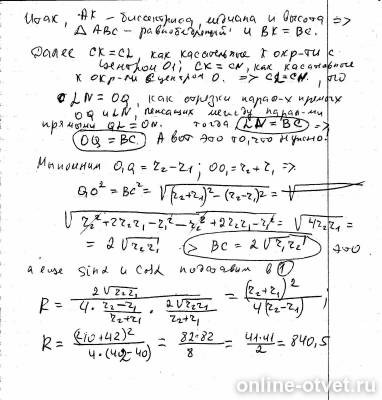 Итак, AK – биссектриса, медиана и высота =>
△ ABC – равнобедренный и BK = BC.
Далее CK = CL, как касательные к окр-ти с
центром O₁; CK = CN, как касательные
к окр-ти с центром O. => CL = CN, это
LN = OQ, как отрезки парал-х прямых
OQ и LN, лежащих между парал-ми
прямыми QL = ON. Тогда LN = BC =>
OQ = BC. А вот это то, что нужно.
Мы помним O₁Q = r₂ – r₁; OO₁ = r₂ + r₁ =>
QO² = BC² = √(r₂+r₁)² – (r₂–r₁)² = √
√r₂² + 2r₂r₁ – r₁² – r₂² + 2r₂r₁ – r₁² = √4r₂r₁ =
= 2√r₂r₁ => BC = 2√r₁r₂ это
а еще sinα и cosα подставим в ①
R = 2√r₂r₁ / (4 · (r₂–r₁)/(r₂+r₁) · 2√r₂r₁/(r₂+r₁)) = (r₂+r₁)² / 4(r₂–r₁) ;
R = (40+42)² / 4·(42–40) = 82·82 / 8 = 41·41 / 2 = 840,5
online-otvet.ru